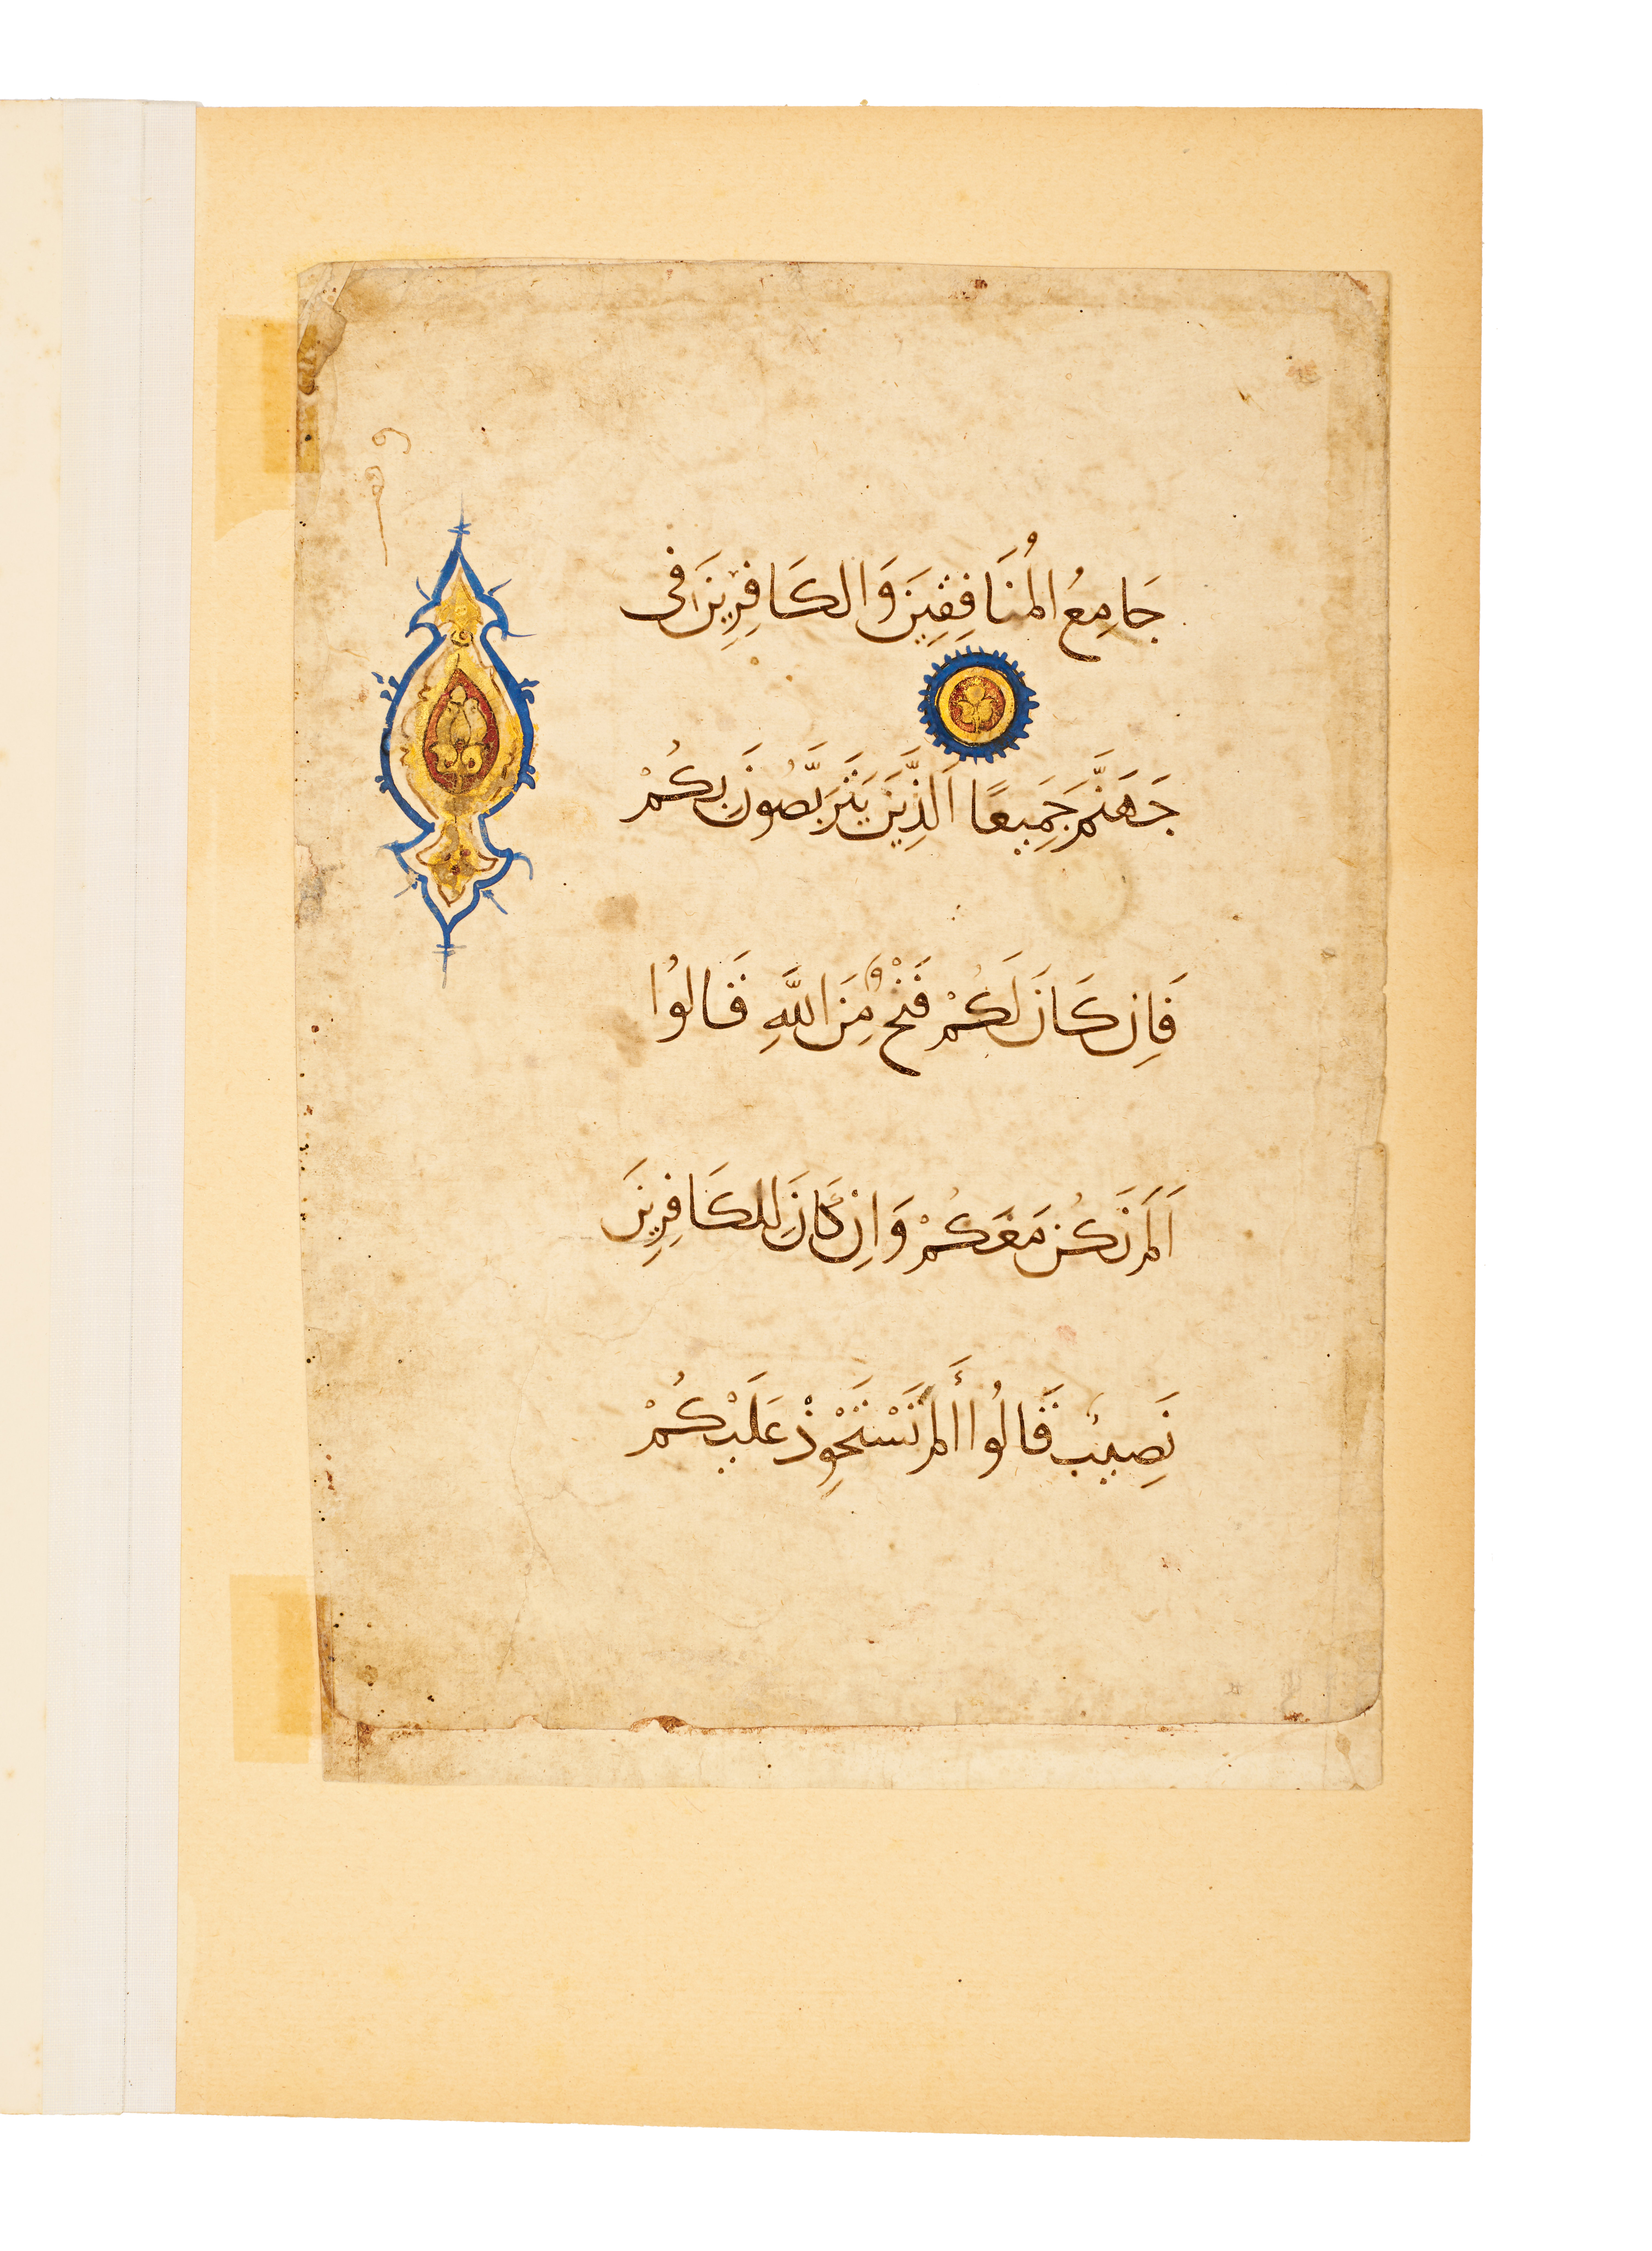 جَامِعُ الْمُنَافِقِينَ وَالكَافِرِينَ فِى
جَهَنَّمَ جَمِيعًا اَلَّذِينَ يَتَرَبَّصُونَ بِكُمْ
فَاِن كَانَ لَكُمْ فَتْحٌ مِنَ اللَّهِ قَالُوا
اَلَمْ نَكُن مَعَكُمْ وَاِن كَانَ لِلكَافِرِينَ
نَصِيبٌ قَالُوا أَلَمْ نَسْتَحْوِذْ عَلَيْكُمْ